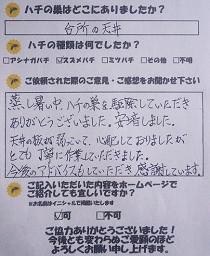 ハチの巣はどこにありましたか?
台所の天井
ハチの種類は何でしたか?
□アシナガバチ ☑スズメバチ □ミツバチ □その他 □不明
ご依頼された際のご意見・ご感想をお聞かせ下さい
蒸し暑い中、ハチの巣を駆除していただき
ありがとうございました。安心しました。
天井の板が弱っていて、心配しておりましたが
とても丁寧に作業していただきました。
今後のアドバイスもしていただき感謝しています。
ご記入いただいた内容をホームページで
ご紹介しても宜しいですか?
※お名前はイニシャルで掲載いたします
☑可 □不可
ご協力ありがとうございました!
今後とも変わらぬご愛顧のほど
よろしくお願い申し上げます。